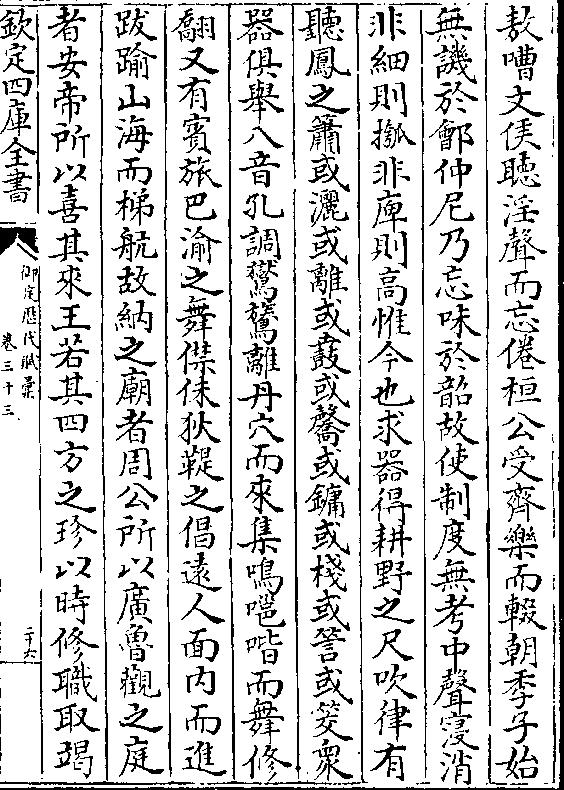 敖嘈文侯聽淫聲而忘倦桓公受齊樂而輟朝季子始
無譏於鄶仲尼乃忘味於韶故使制度無考中聲寖消
非細則摦非庳則高惟今也求器得耕野之尺吹律有
聽鳳之簫或灑或離或鼖或鼛或鏞或棧或䇾或筊衆
器俱舉八音孔調鸑鷟離丹穴而來集鳴嗈喈而舞修
翿又有賓旅巴渝之舞僸佅狄鞮之倡遠人面内而進
跋踰山海而梯航故納之廟者周公所以廣魯觀之庭
者安帝所以喜其來王若其四方之珍以時修職取竭
欽定四庫全書
御定歷代賦彙
卷三十三
二十六